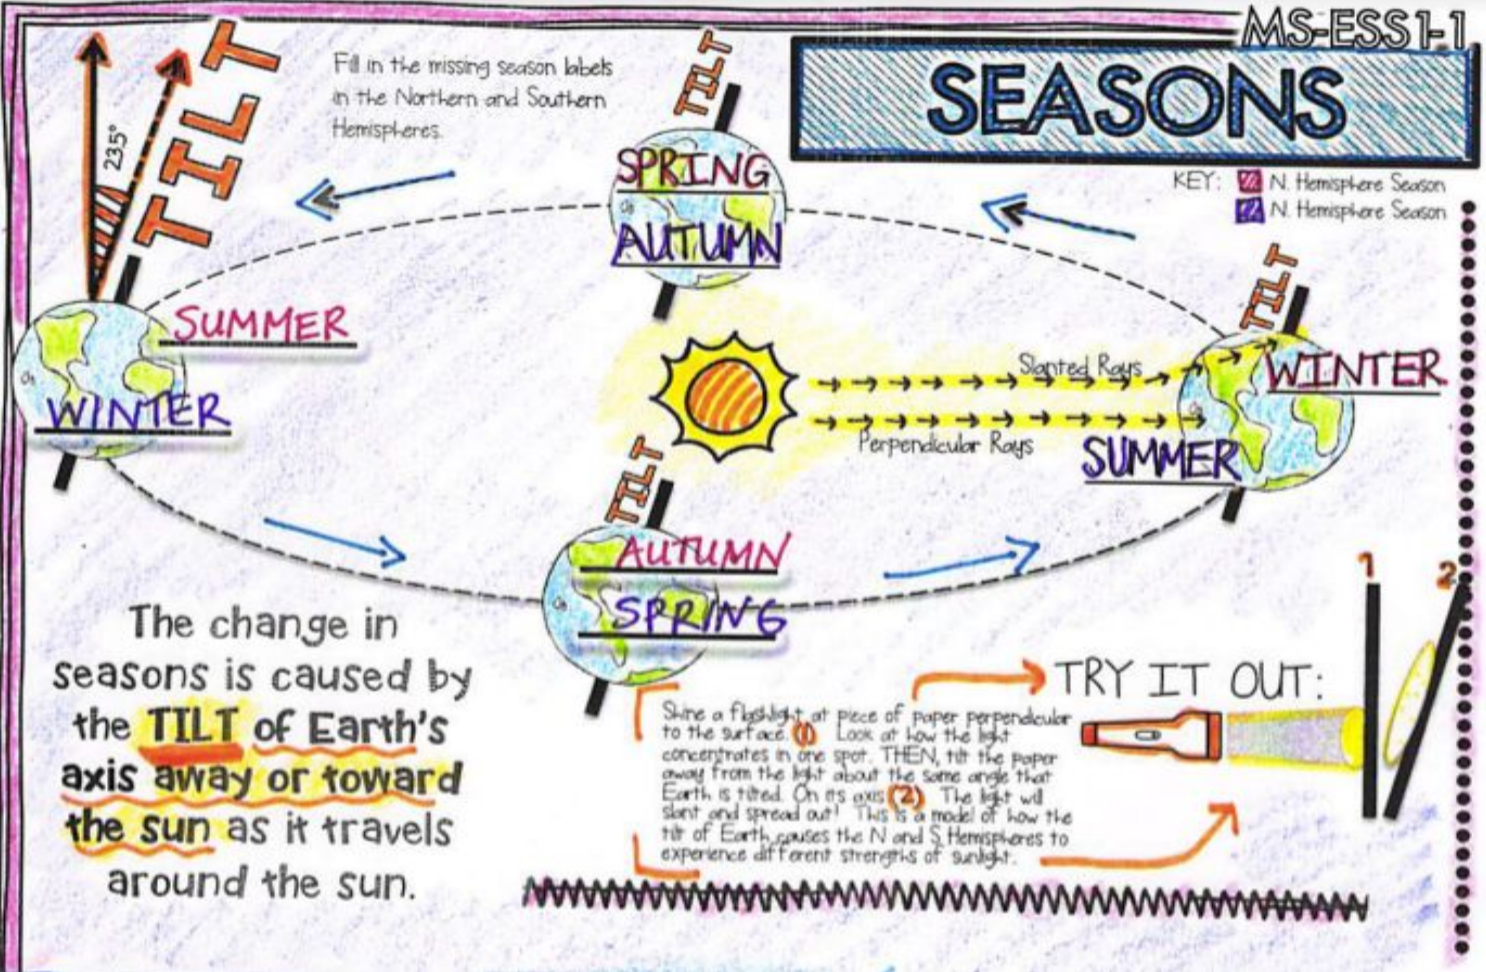 MS-ESS1-1
SEASONS
KEY:
N. Hemisphere Season
N. Hemisphere Season
Fill in the missing season labels
in the Northern and Southern
Hemispheres.
TILT
23.5°
TILT
SPRING
AUTUMN
SUMMER
WINTER
TILT
WINTER
SUMMER
Slanted Rays
Perpendicular Rays
TILT
AUTUMN
SPRING
The change in
seasons is caused by
the TILT of Earth's
axis away or toward
the sun as it travels
around the sun.
TRY IT OUT:
Shine a flashlight at piece of paper perpendicular
to the surface. (1) Look at how the light
concentrates in one spot. THEN, tilt the paper
away from the light about the same angle that
Earth is tilted. On its axis (2) The light will
slant and spread out! This is a model of how the
tilt of Earth causes the N and S Hemispheres to
experience different strengths of sunlight.
1
2